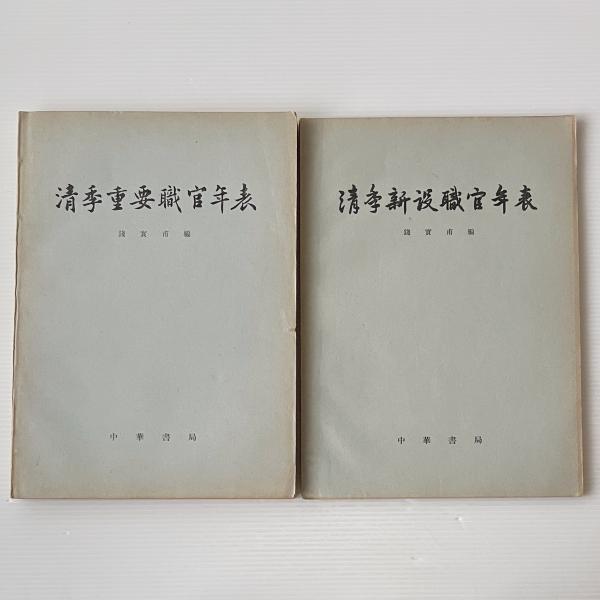 清季重要職官年表
錢實甫編
中華書局
清季新设職官年表
錢實甫編
中華書局